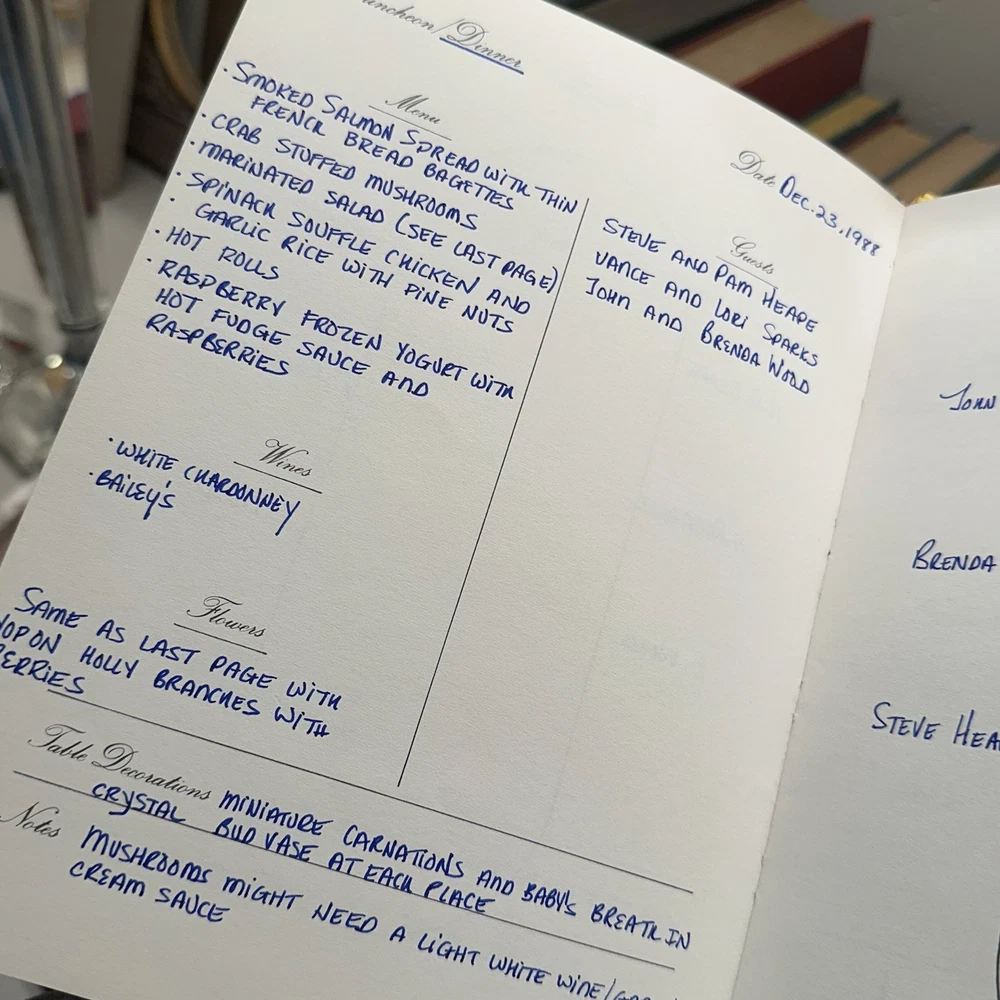 Luncheon/Dinner
Date Dec. 23, 1988
Menu
· SMOKED SALMON SPREAD WITH THIN
FRENCH BREAD BAGETTES
· CRAB STUFFED MUSHROOMS
· MARINATED SALAD (SEE LAST PAGE)
· SPINACH SOUFFLE CHICKEN AND
· GARLIC RICE WITH PINE NUTS
· HOT ROLLS
· RASPBERRY FROZEN YOGURT WITH
HOT FUDGE SAUCE AND
RASPBERRIES
Wines
· WHITE CHARDONNEY
· BAILEY'S
Flowers
SAME AS LAST PAGE WITH
HOLLY BRANCHES WITH
BERRIES
Guests
STEVE AND PAM HEAPE
VANCE AND LORI SPARKS
JOHN AND BRENDA WOOD
Table Decorations MINIATURE CARNATIONS AND BABY'S BREATH IN
CRYSTAL BUD VASE AT EACH PLACE
Notes MUSHROOMS MIGHT NEED A LIGHT WHITE WINE/
CREAM SAUCE
JOHN
BRENDA
STEVE